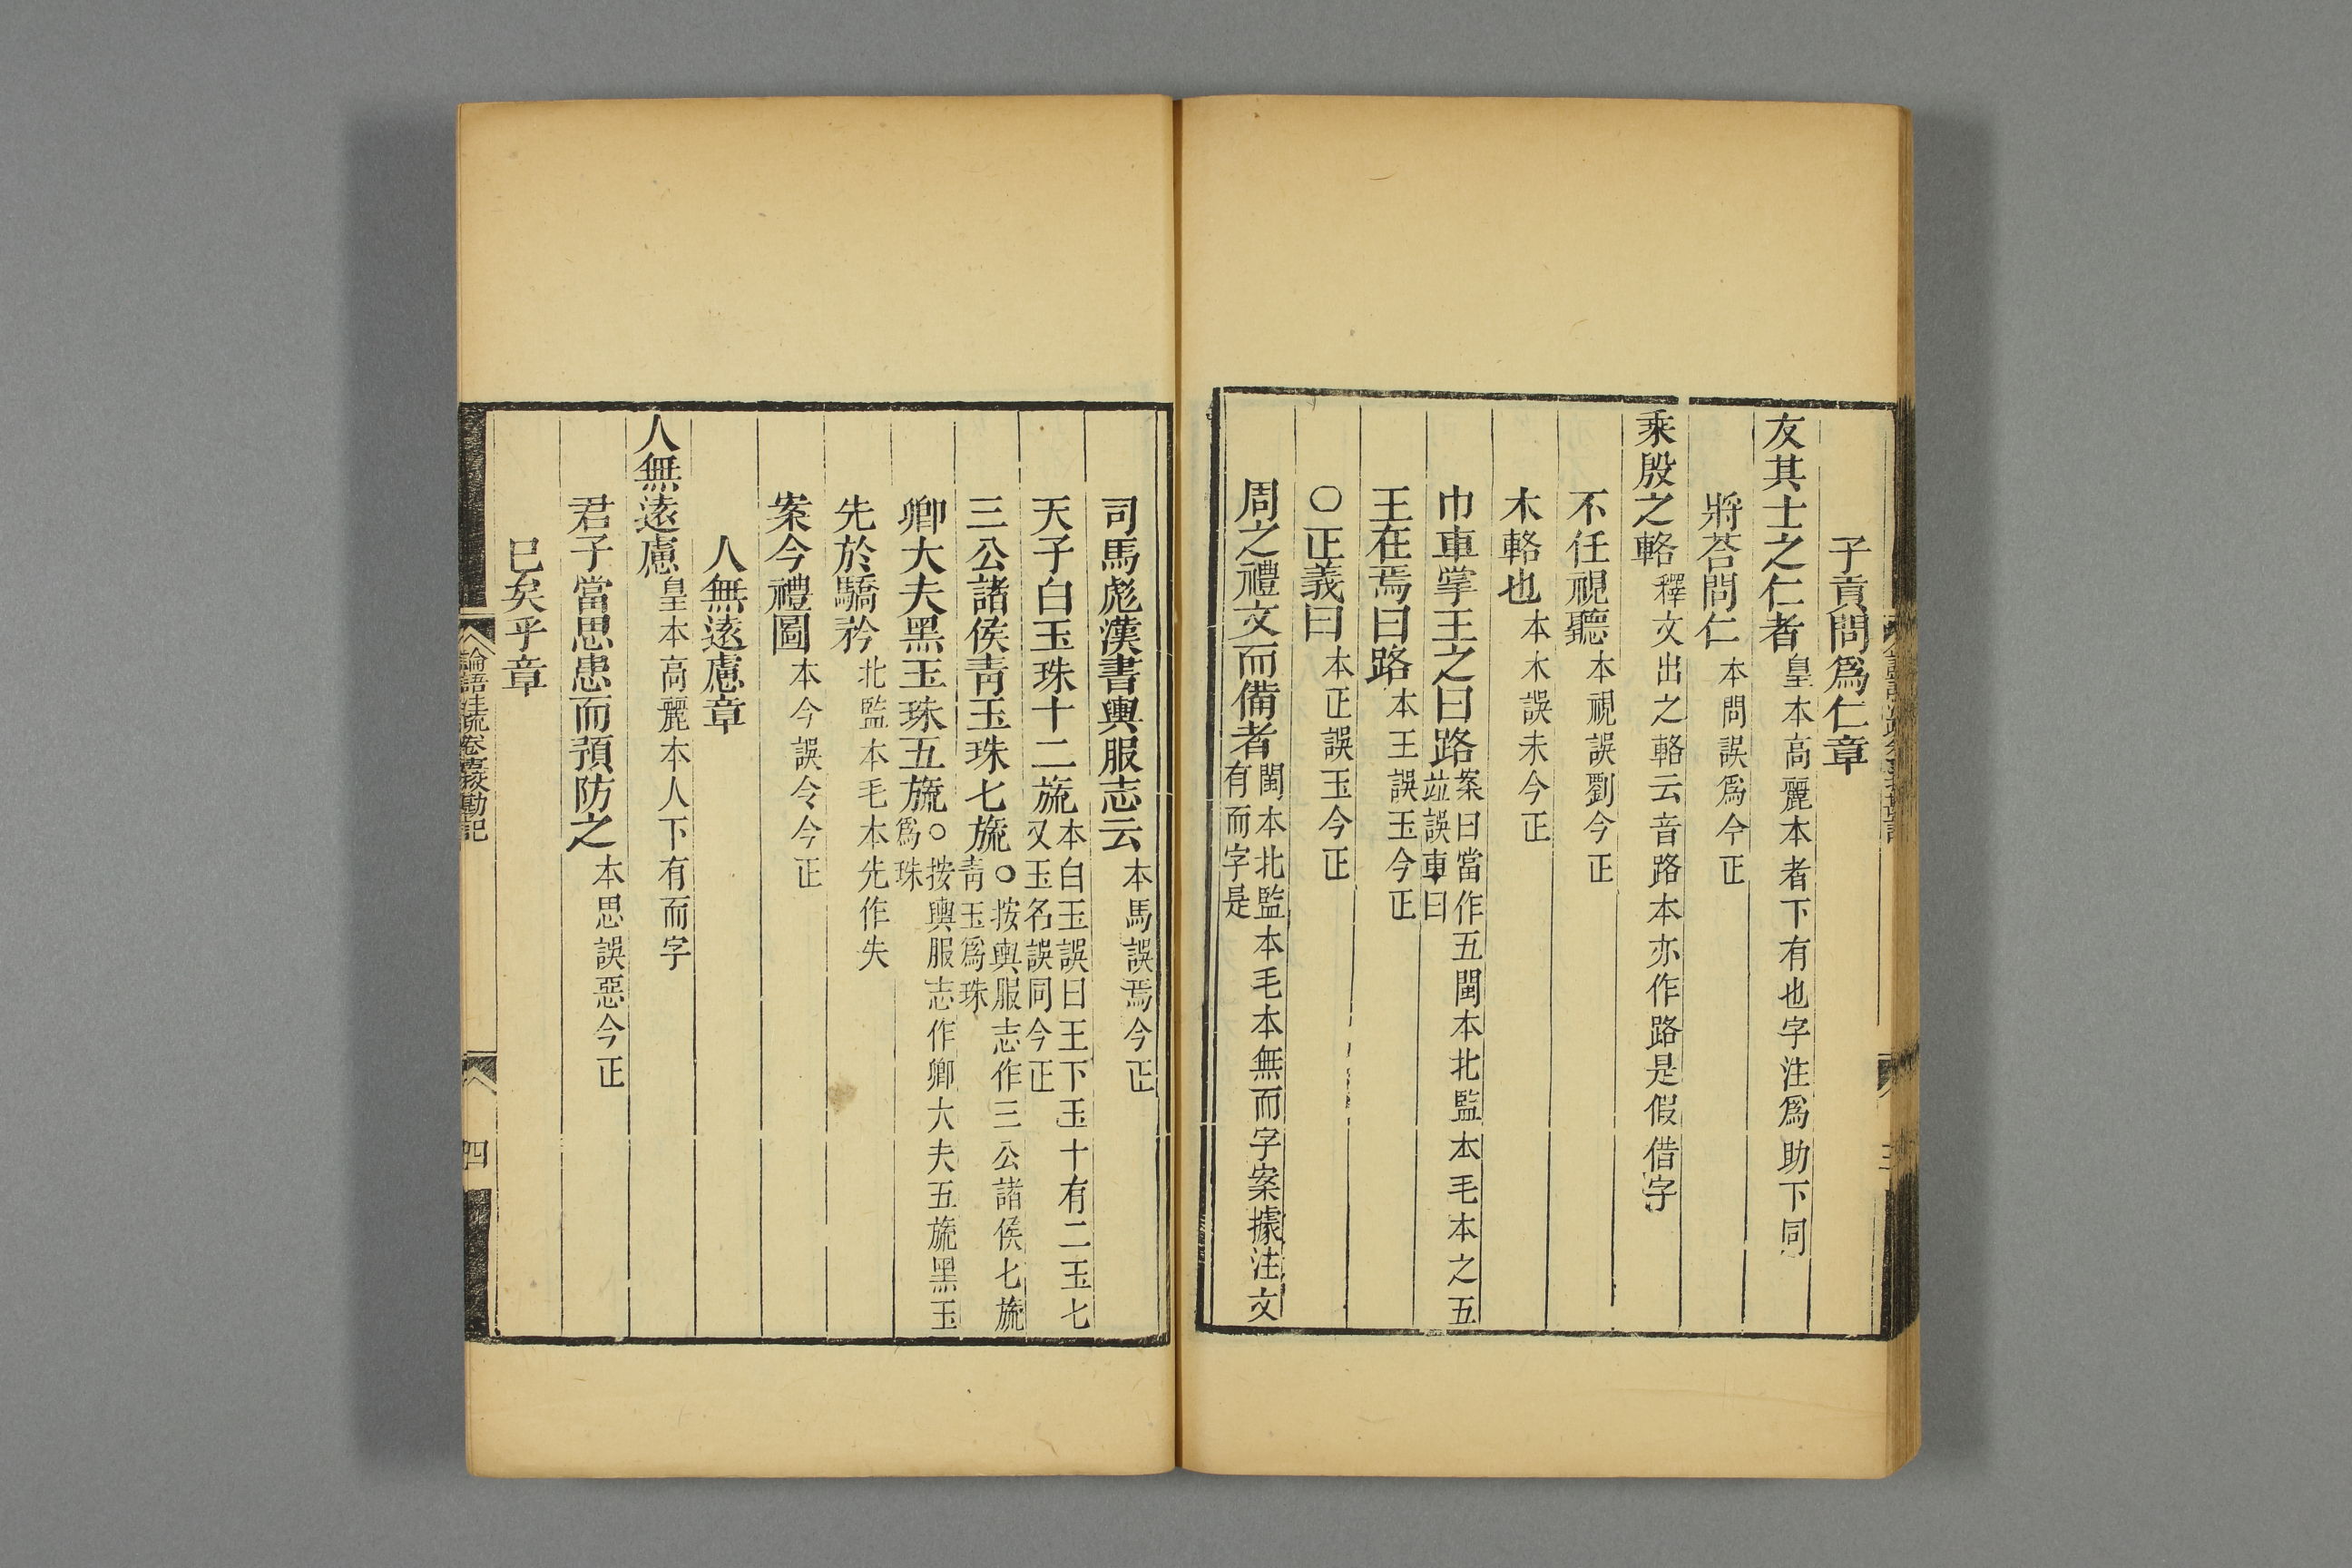 子貢問爲仁章
友其士之仁者皇本高麗本者下有也字注爲助下同
將荅問仁本問誤爲今正
乘殷之輅釋文出之輅云音路本亦作路是假借字
不任視聽本視誤劉今正
木輅也本木誤未今正
巾車掌王之曰路案曰當作五閩本北監本毛本之五
竝誤車曰
王在焉曰路本王誤玉今正
〇正義曰本正誤玉今正
周之禮文而備者閩本北監本毛本無而字案據注文
有而字是
司馬彪漢書輿服志云本馬誤焉今正
天子白玉珠十二旒本白玉誤曰王下玉十有二玉七
又玉名誤同今正
三公諸侯靑玉珠七旒〇按輿服志作三公諸侯七旒
靑玉爲珠
卿大夫黑玉珠五旒〇按輿服志作卿大夫五旒黑玉
爲珠
先於驕矜北監本毛本先作失
案今禮圖本今誤令今正
人無遠慮章
人無遠慮皇本高麗本人下有而字
君子當思患而預防之本思誤惡今正
巳矣乎章
論語注疏卷十五挍勘記
四